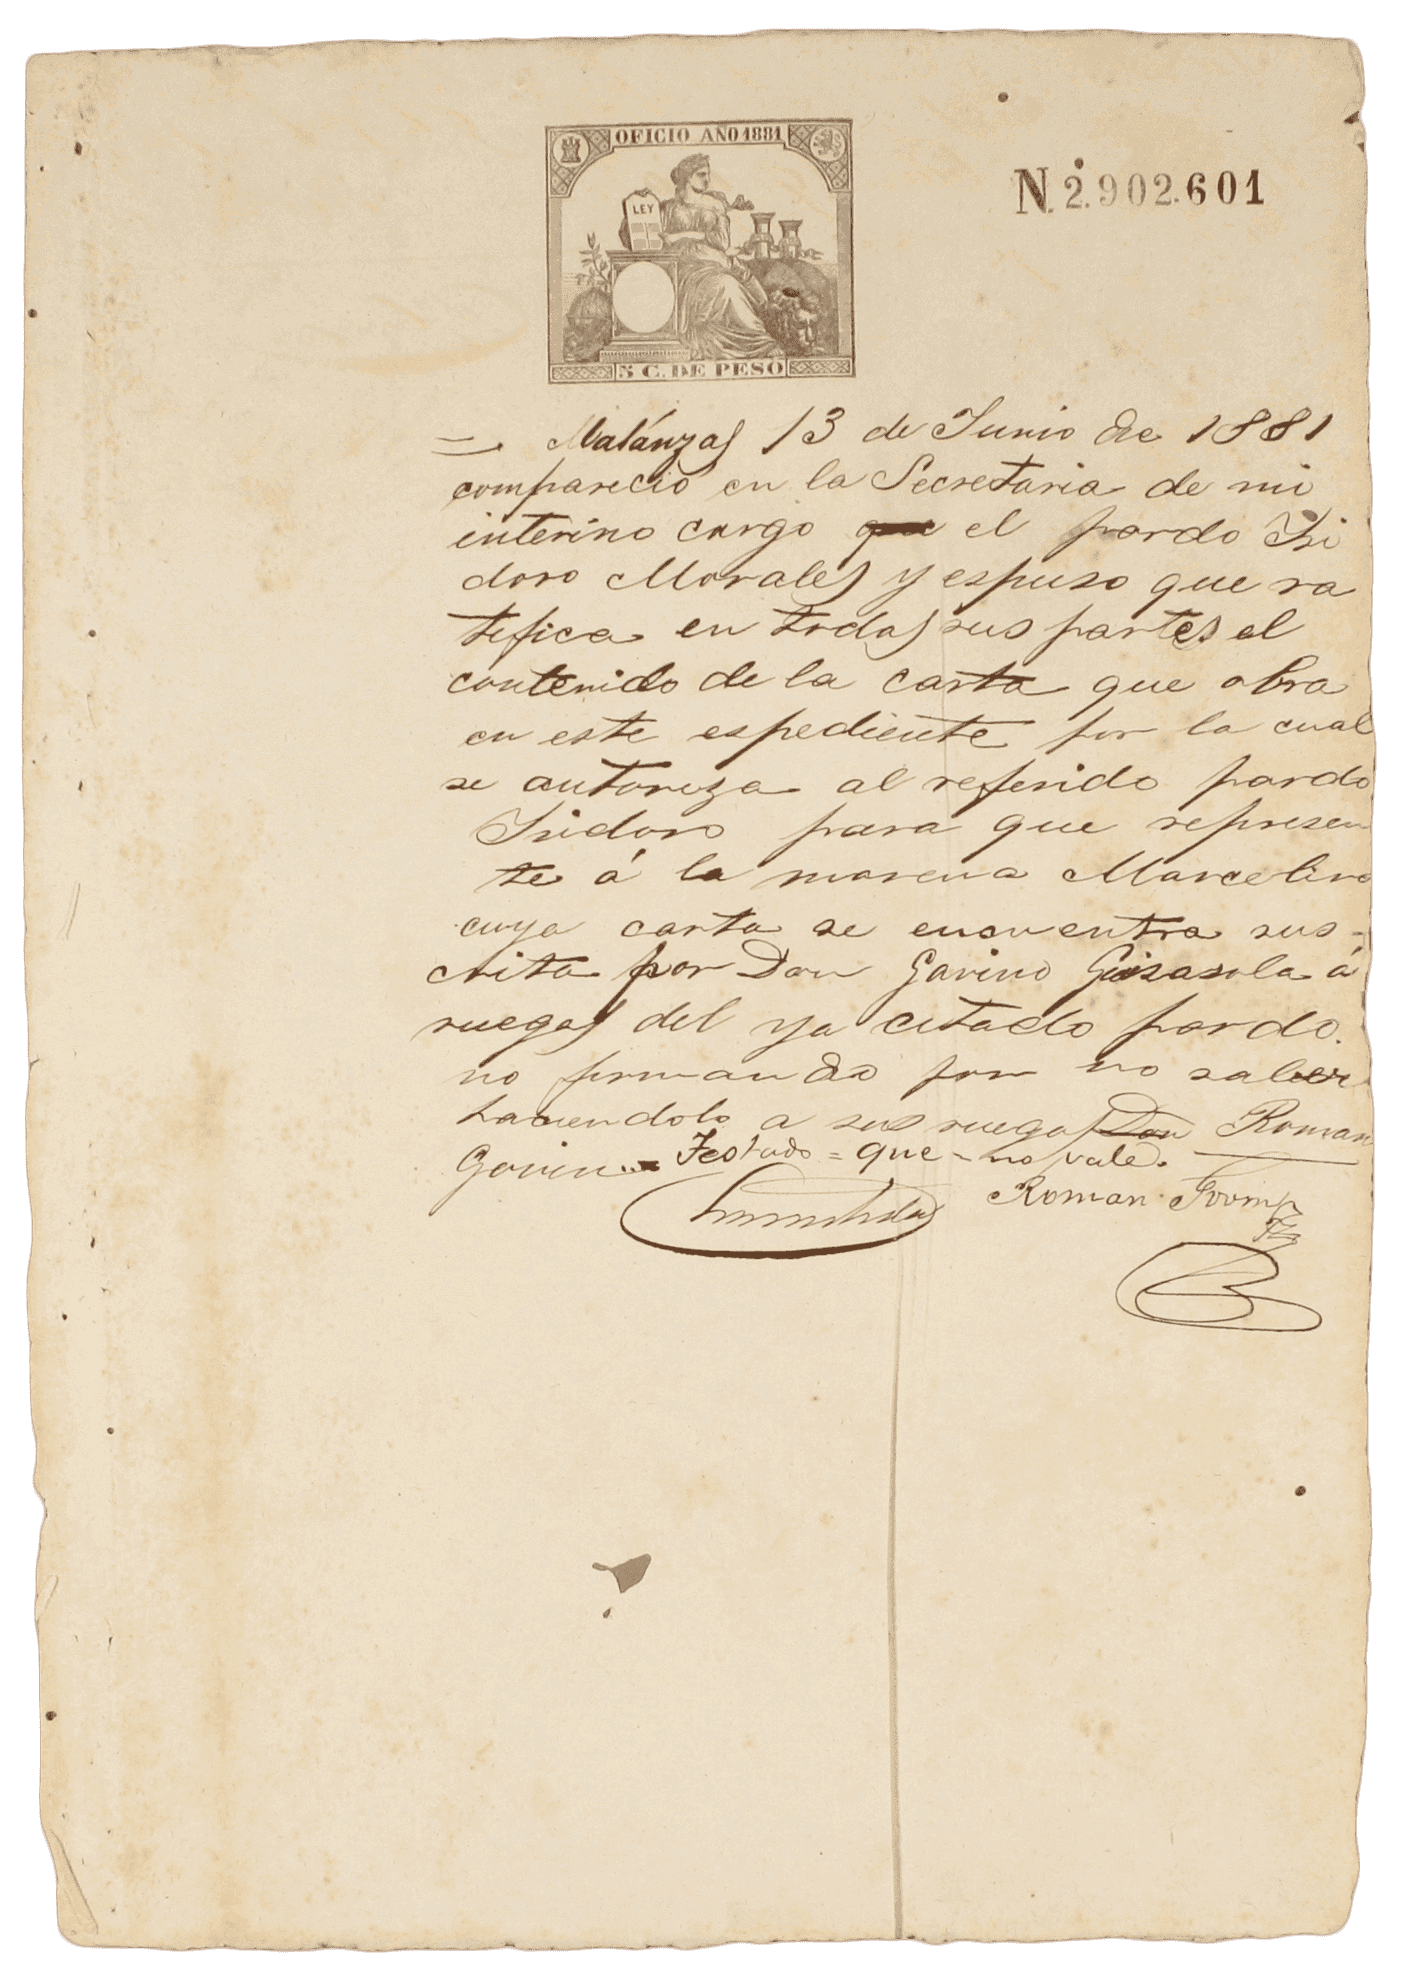 OFICIO AÑO 1881
N. 2.902.601
LEY
5 C. DE PESO
Matánzas 13 de Junio de 1881
comparecio en la Secretaria de mi
interino cargo que el pardo Isi
doro Morales y espuso que ra
tifica en todas sus partes el
contenido de la carta que obra
en este espediente por la cual
se autoriza al referido pardo
Isidoro para que represen
te á la morena Marcelina
cuya carta se encuentra sus-
crita por Don Gavino Gisasola á
ruegos del ya citado pardo.
no firmando por no saber
haciendolo a sus ruegos Don Roman
Govin Testado = que - no vale.
Roman